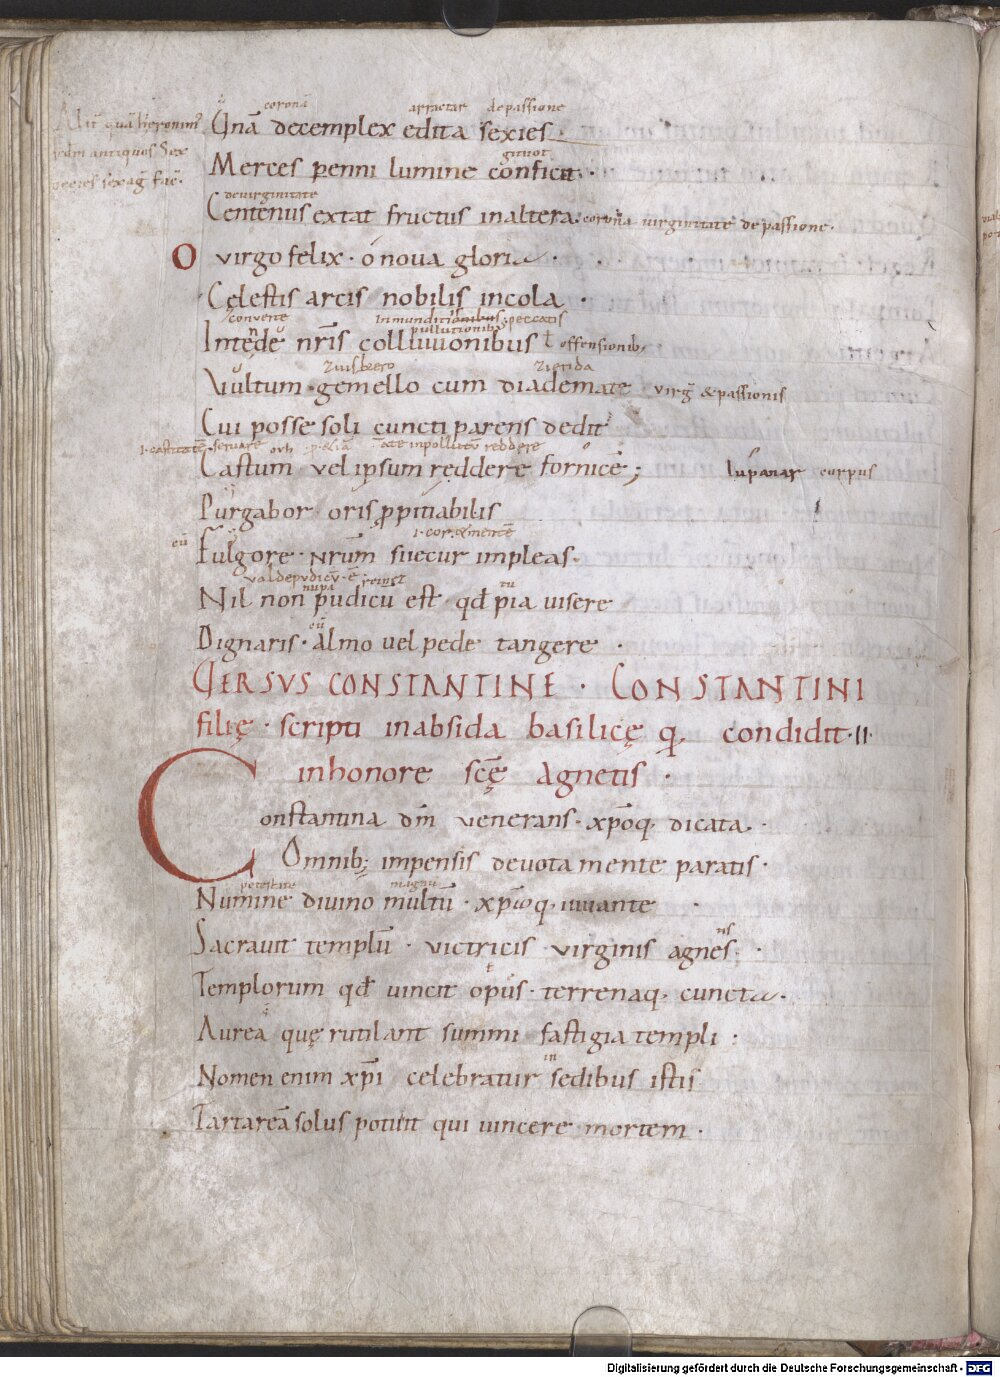 coronā arractar de passione
Unā decemplex edita sexies.
gitūot
Merces penni lumine conficit.
de virginitate
Centenus extat fructus in altera. corona virginitate de passione.
O virgo felix · o noua gloria ·
Cęlestis arcis nobilis incola ·
conuerte inmunditionibus peccatis
pullutionibus
Intende nr̄is colluuionibus ł offensionib;
zuisbero zierida
Vultum · gemello cum diademate virḡ & passionis
Cui posse soli cuncti parens dedit
seruare reddere
Castum vel ipsum reddere fornicē; lupanar corpus
Purgabor · oris ppitiabilis
i· cor · & mentē
Fulgore · nrūm iecur impleas ·
ualde pudicū · ē
Nil non pudicū est · qđ pia uisere
Dignaris · almo uel pede tangere ·
VERSVS CONSTANTINE · CONSTANTINI
filię · scripti in absida basilicę q condidit · ||·
in honore scę̄ Agnetis ·
Constantina dm̄ venerans · xp̄oq; dicata ·
Omnib; impensis deuota mente paratis ·
potestate magnū
Numine diuino multū · xp̄oq; iuuante
Sacrauit templū · victricis virginis agnes ·
Templorum qđ uincit opus · terrenaq; cuncta ·
Aurea quę rutilant summi fastigia templi :
in
Nomen enim xp̄i celebratur sedibus istis
Tartareā solus potuit qui uincere mortem ·
Digitalisierung gefördert durch die Deutsche Forschungsgemeinschaft - DFG